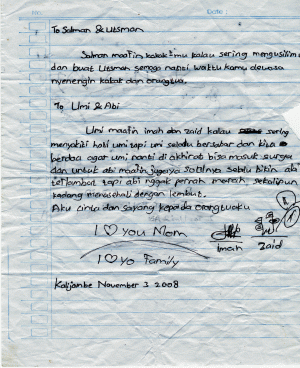 No. Date:
To Salman & Utsman
Salman maafin kakak²mu kalau sering mengusilimu
dan buat Utsman semoga nanti waktu kamu dewasa
nyenengin kakak dan orangtua.
To Umi & Abi
Umi maafin imah dan zaid kalau sering
menyakiti hati umi tapi umi selalu bersabar dan bisa
berdoa agar umi nanti di akhirat bisa masuk surga
dan untuk abi maafin juga ya soalnya selalu bikin abi
terlambat tapi abi nggak pernah marah sekalipun
kadang menasehati dengan lembut.
Aku cinta dan sayang kepada orangtuaku
I ♡ you Mom
I ♡ yo Family
Imah Zaid
Kalijambe November 3 2008